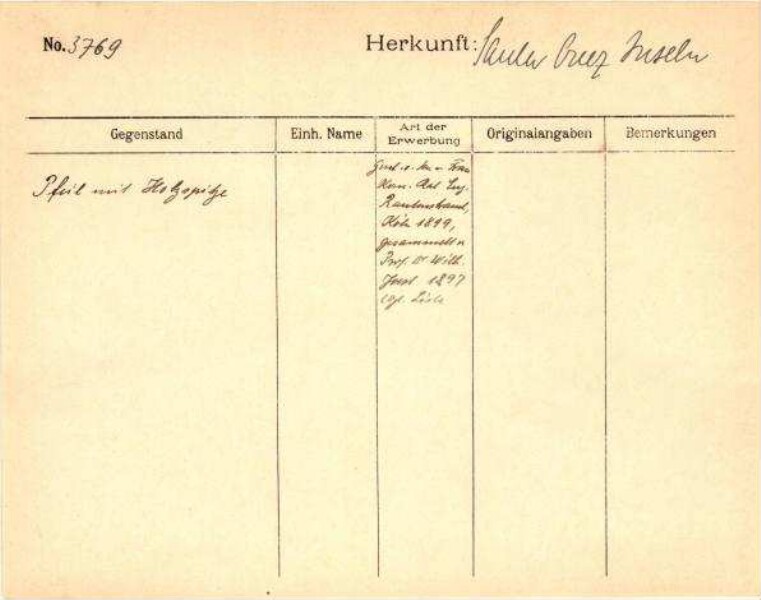 No. 3769
Herkunft: Santa Cruz Inseln
Gegenstand
Einh. Name
Art der
Erwerbung
Originalangaben
Bemerkungen
Pfeil mit Holzspitze
Frau
Eug.
Rautenstrauch,
Köln 1899,
gesammelt v.
Prof. Dr Wilh.
Joest 1897
vgl. Liste